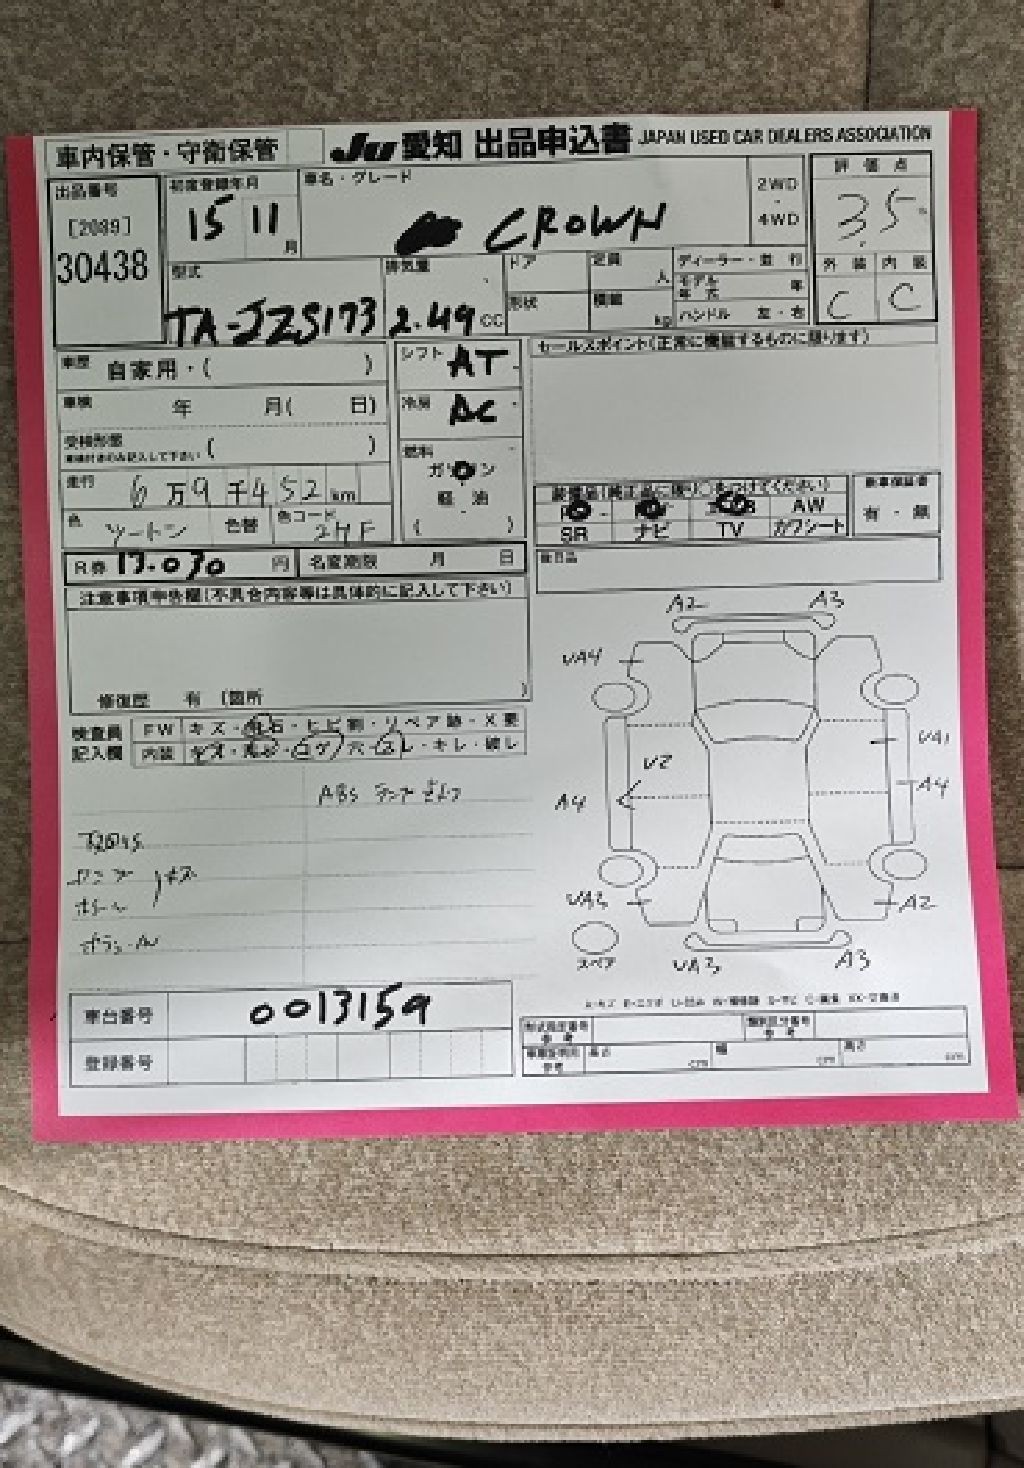 車内保管・守衛保管
JU 愛知 出品申込書 JAPAN USED CAR DEALERS ASSOCIATION
出品番号
[2089]
30438
初度登録年月
15 11 月
車名・グレード
CROWN
2WD
・
4WD
評価点
3.5
外装 内装
C C
型式
TA-JZS173
排気量
2.49 CC
ドア
形状
定員 人
積載 kg
ディーラー・並行
モデル年式 年
ハンドル 左・右
車歴 自家用・( )
車検 年 月( 日)
受検形態
車検付きのみ記入して下さい ( )
走行 6万9千452km
色 ツートン 色替 色コード
シフト AT
冷房 AC
燃料
ガソリン
軽油
( )
セールスポイント(正常に機能するものに限ります)
装備品(純正品に限り○をつけてください)
AW
SR ナビ TV カワシート
新車保証書
有・無
R券 17.070 円 名変期限 月 日
後日品
注意事項申告欄(不具合内容等は具体的に記入して下さい)
修復歴 有 (箇所 )
検査員
記入欄
FW キズ・飛石・ヒビ割・リペア跡・X要
内装 キズ・汚れ・コゲ・穴・スレ・キレ・破レ
ABS ランプ
A2 A3
UA4
U2
UA1
A4
A4
UA3
A2
スペア
UA3
A3
車台番号 0013159
登録番号
形式指定番号
参考
類別区分番号
参考
参考 長さ cm 幅 cm 高さ cm